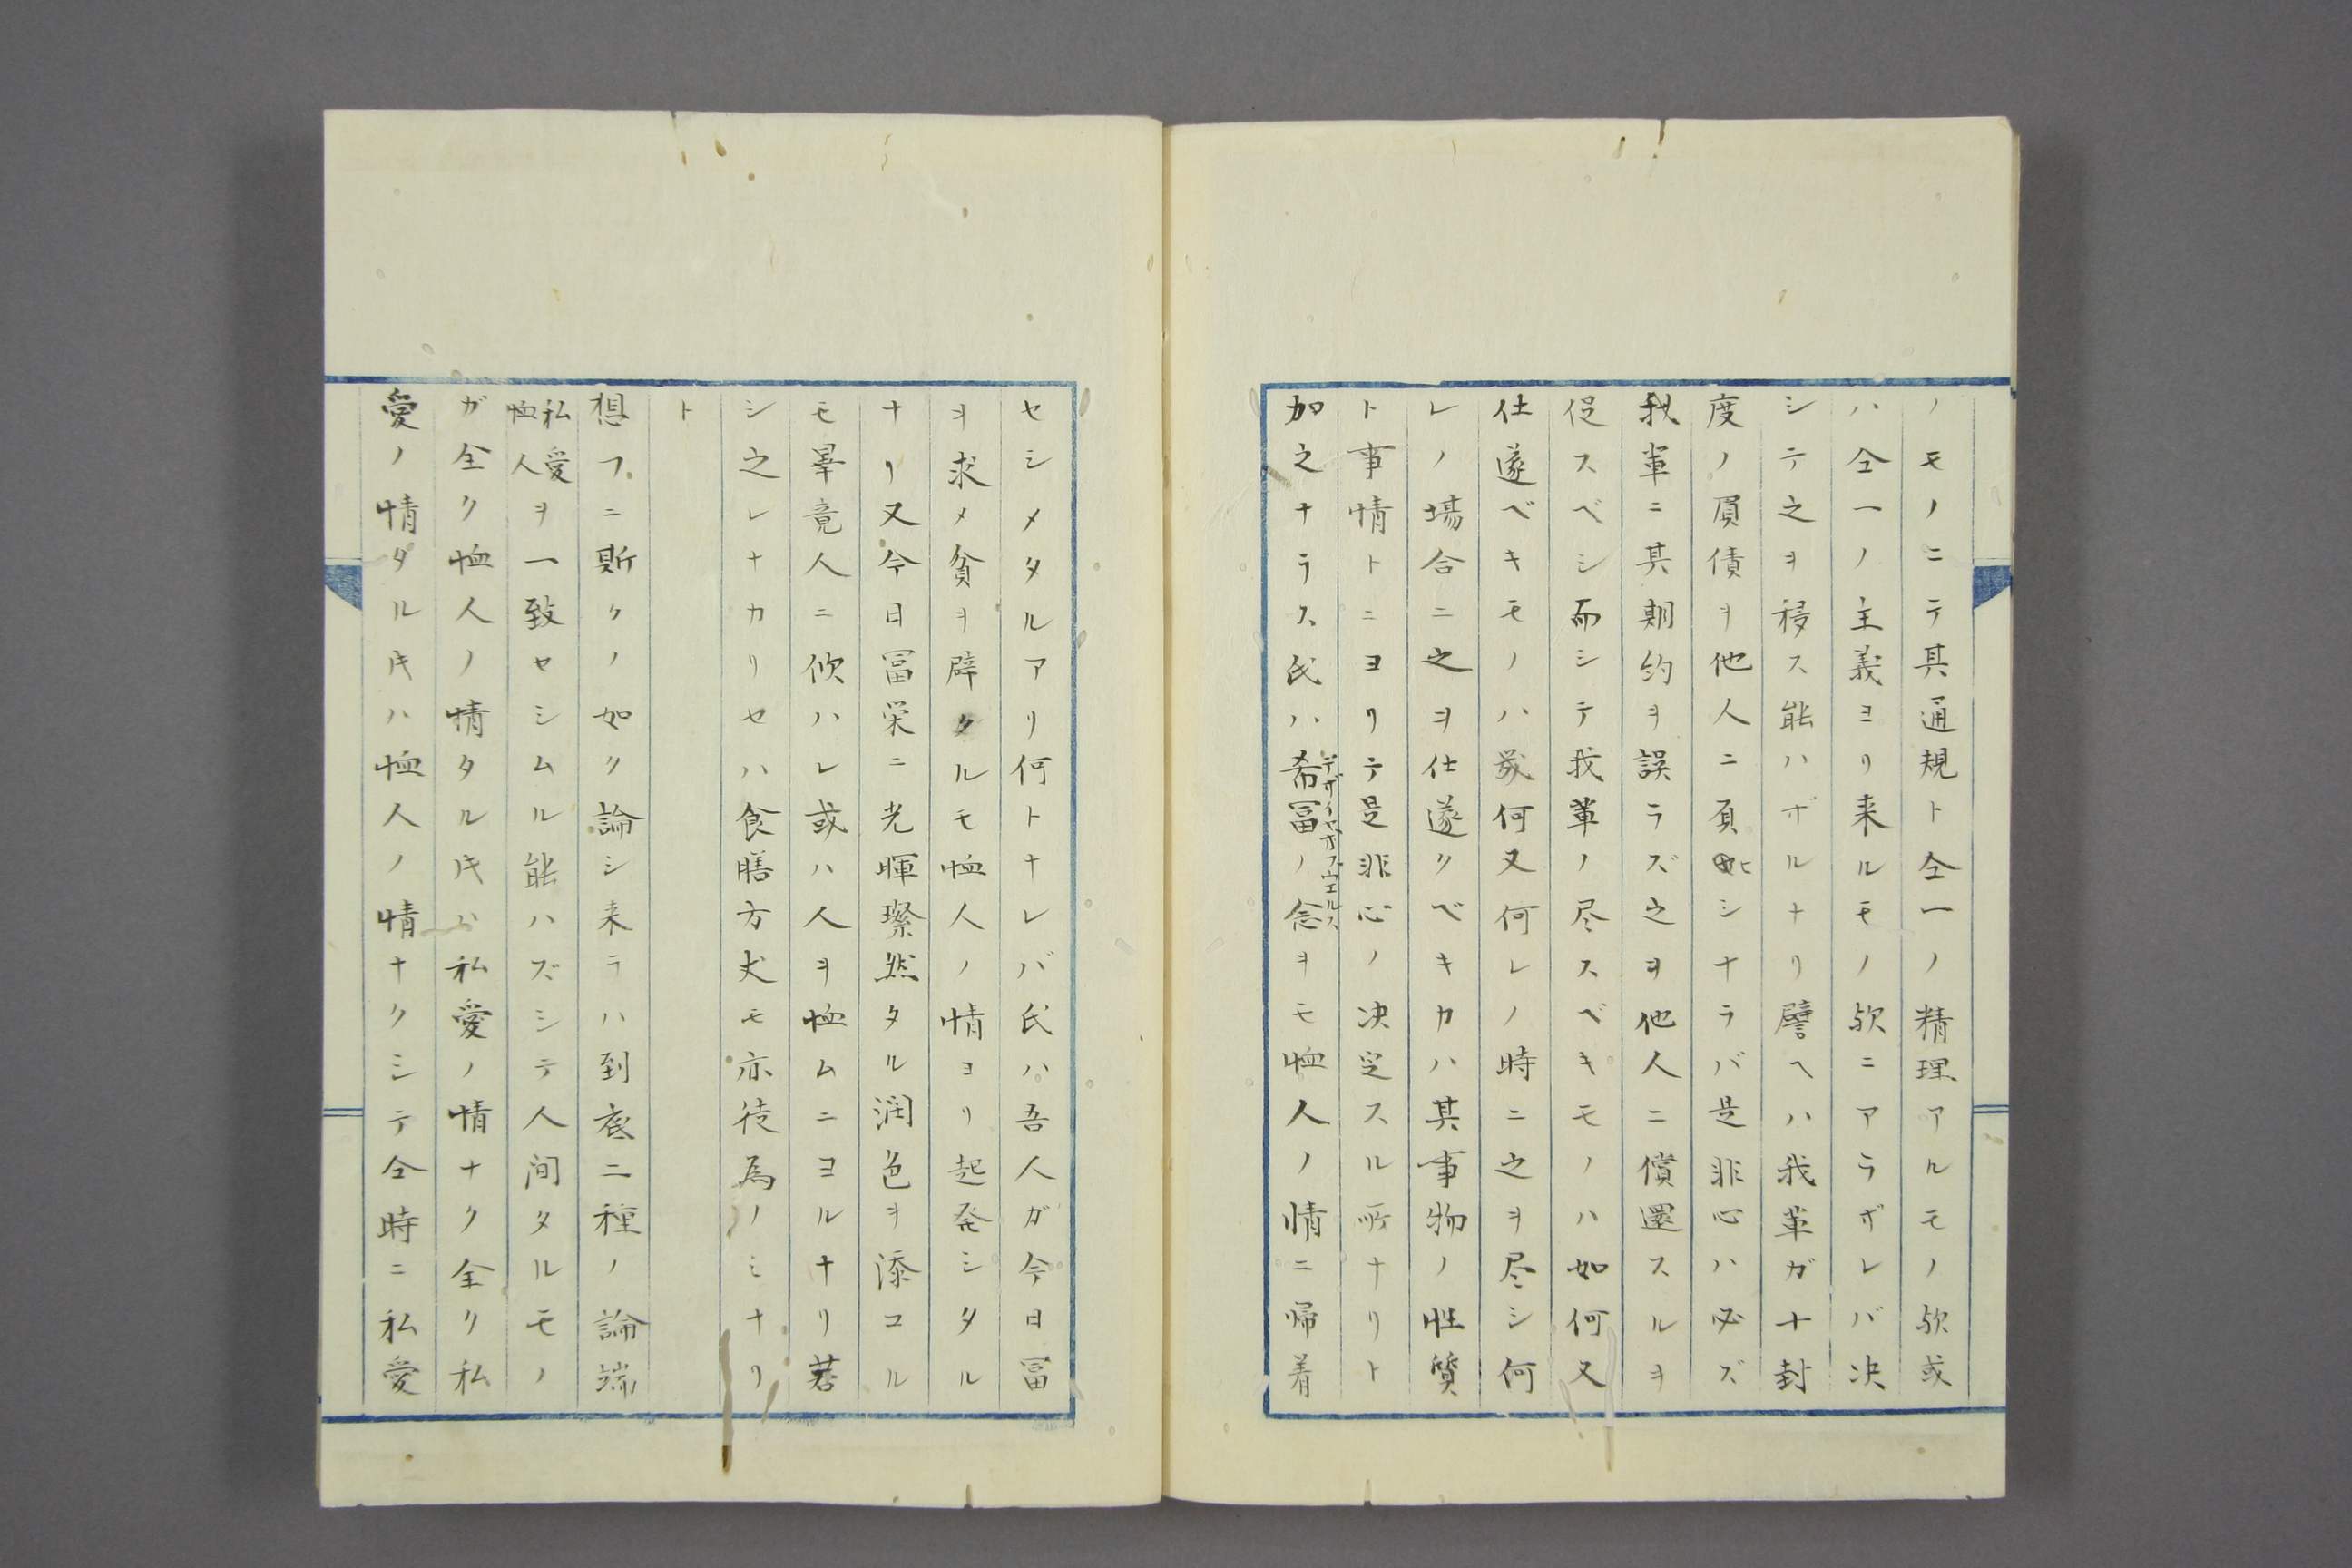 ノモノニテ其通規ト仝一ノ精理アルモノ欤或
ハ仝一ノ主義ヨリ来ルモノ欤ニアラザレバ决
シテ之ヲ移ス能ハザルナリ譬ヘハ我輩ガ十封
度ノ負債ヲ他人ニ負ヒシナラバ是非心ハ必ズ
我輩ニ其期約ヲ誤ラズ之ヲ他人ニ償還スルヲ
促スベシ而シテ我輩ノ尽スベキモノハ如何又
仕遂ベキモノハ幾何又何レノ時ニ之ヲ尽シ何
レノ場合ニ之ヲ仕遂クベキカハ其事物ノ性質
ト事情トニヨリテ是非心ノ决定スル所ナリト
加之ナラス氏ハ希冨ノ念ヲモ恤人ノ情ニ帰着
セシメタルアリ何トナレバ氏ハ吾人ガ今日冨
ヲ求メ貧ヲ辟クルモ恤人ノ情ヨリ起発シタル
ナリ又今日冨栄ニ光暉璨然タル潤色ヲ添コル
モ畢竟人ニ依ハレ或ハ人ヲ恤ムニヨルナリ若
シ之レナカリセハ食膳方丈モ亦徒為ノミナリ
ト
想フニ斯クノ如ク論シ来ラハ到底二種ノ論端
私愛恤人ヲ一致セシムル能ハズシテ人间タルモノ
ガ全ク恤人ノ情タル𪜈ハ私愛ノ情ナク全ク私
愛ノ情タル𪜈ハ恤人ノ情ナクシテ仝時ニ私愛